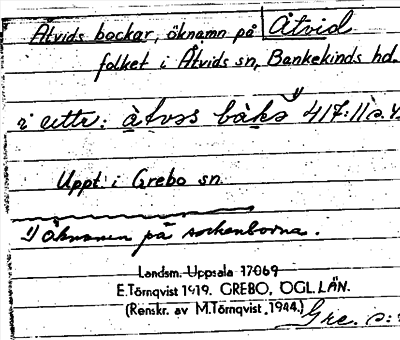 Åtvids bockar, öknamn på Åtvid
folket i Åtvids sn, Bankekinds hd.
i uttr: åtvss båkə 1) 417:11 s. 4.
Uppt. i Grebo sn.
1) öknamn på sockenborna.
Landsm. Uppsala 17069
E. Törnqvist 1919. GREBO, ÖGL. LÄN.
(Renskr. av M. Törnqvist, 1944.)
Gre. s: